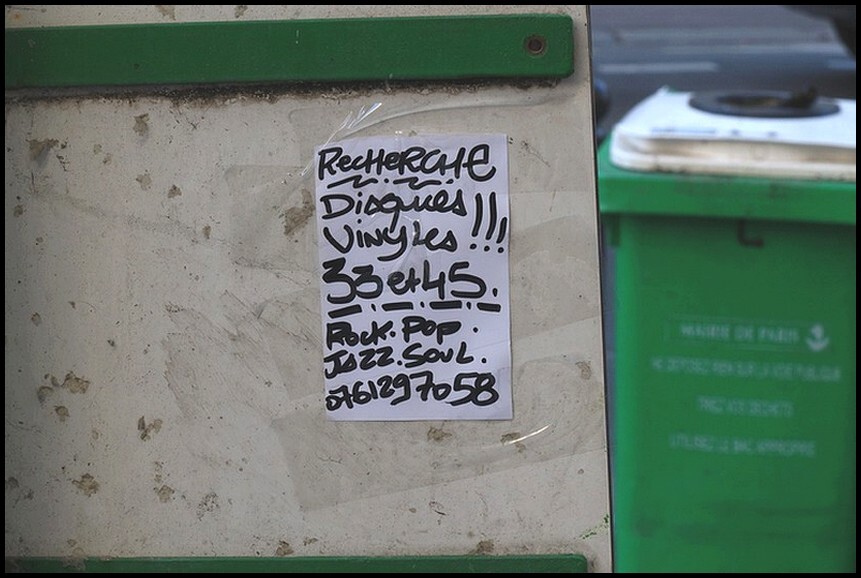 RecHeRCHe
Disques
Vinyles !!!
33 et 45.
Rock. Pop.
JaZZ. Soul.
0761297058
MAIRIE DE PARIS
NE DEPOSEZ RIEN SUR LA VOIE PUBLIQUE
TRIEZ VOS DECHETS
UTILISEZ LE BAC APPROPRIE